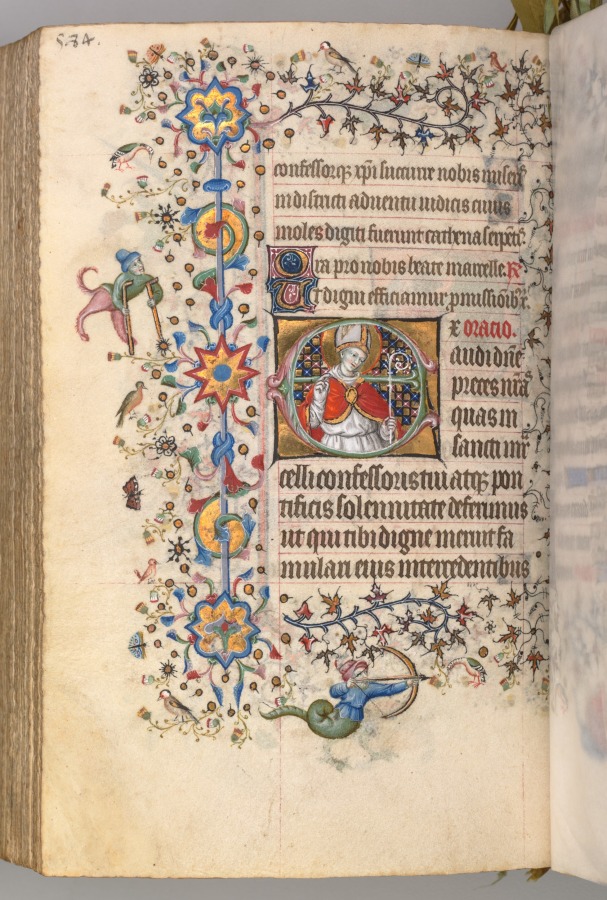 584.
confessorq; xpi succurre nobis miseris
in districti adventu iudicis cuius
moles digiti fuerunt cathena serpentis
Ora pro nobis beate marcelle. R
Ut digni efficiamur pmissioib;
x oratio.
Exaudi dñe
preces nr̃as
quas in
sancti mr
celli confessoris tui atq; pon
tificis solennitate deferimus
ut qui tibi digne meruit fa
mulari eius intercedentibus